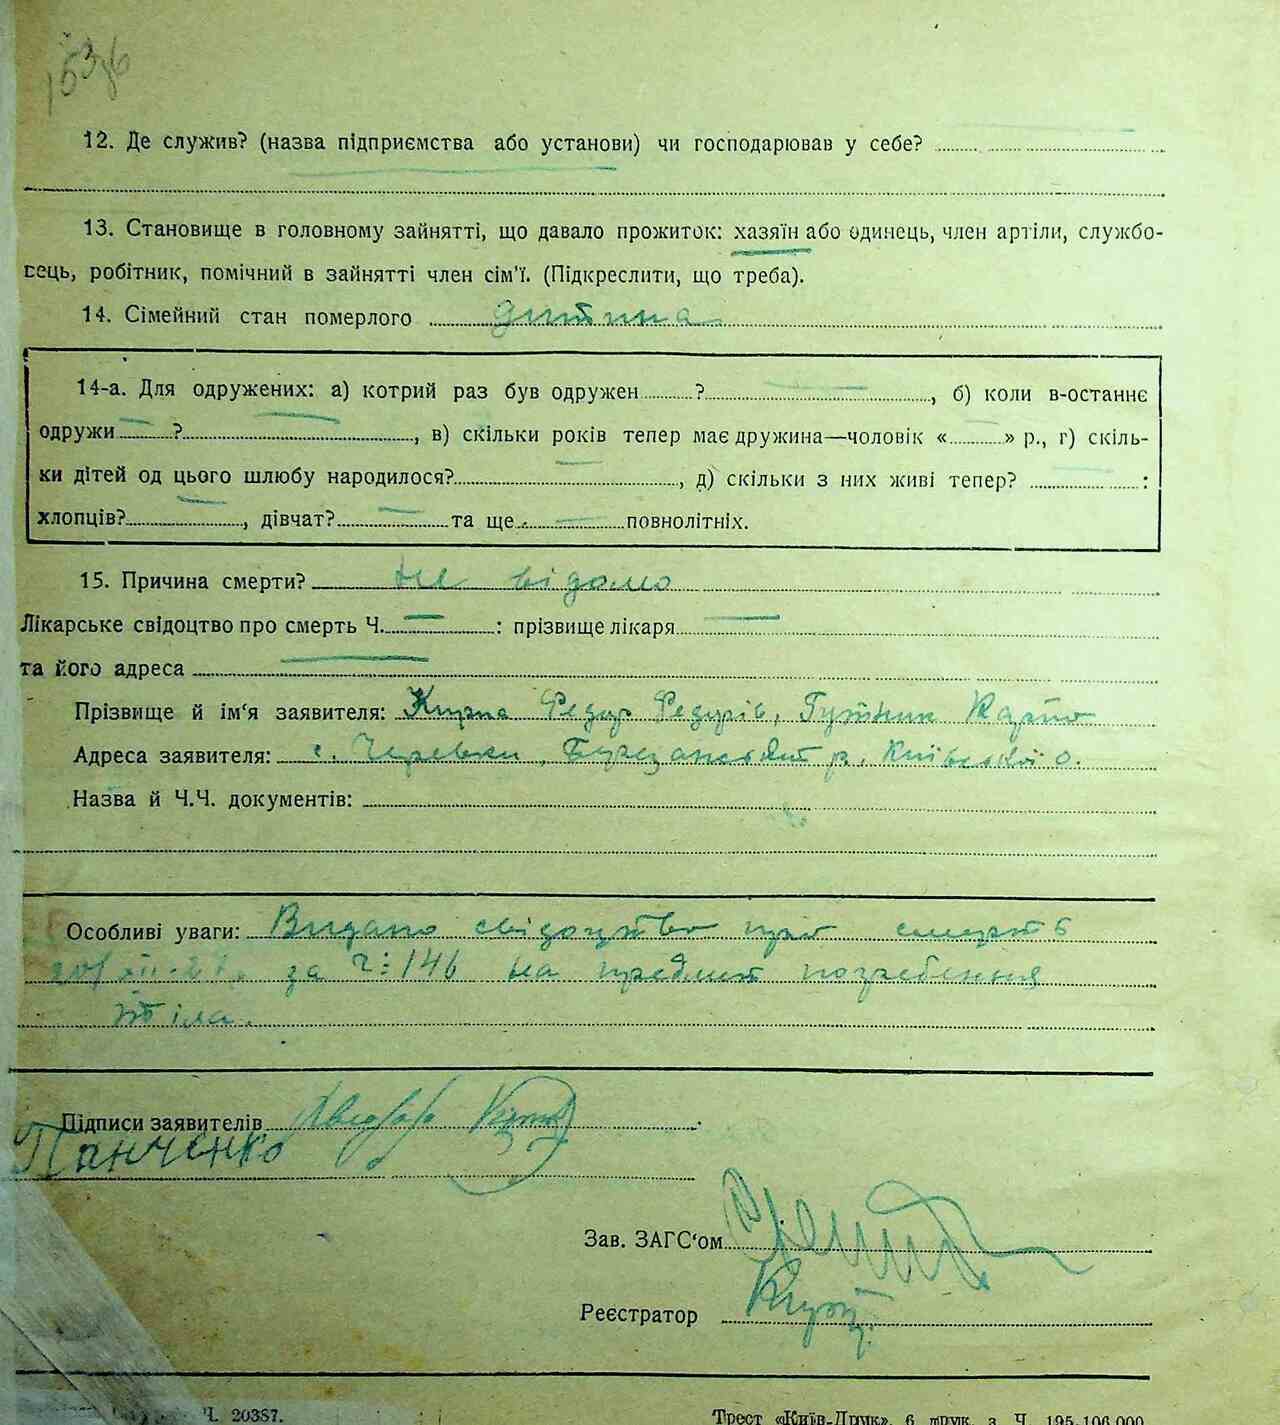 12. Де служив? (назва підприємства або установи) чи господарював у себе?
13. Становище в головному зайнятті, що давало прожиток: хазяїн або одинець, член артіли, службо-
вець, робітник, помічний в зайнятті член сім'ї. (Підкреслити, що треба).
14. Сімейний стан померлого дитина
14-а. Для одружених: а) котрий раз був одружен ? , б) коли в-останнє
одружи ? , в) скільки років тепер має дружина—чоловік « » р., г) скіль-
ки дітей од цього шлюбу народилося? , д) скільки з них живі тепер? :
хлопців? , дівчат? та ще повнолітніх.
15. Причина смерти? не відомо
Лікарське свідоцтво про смерть Ч. : прізвище лікаря
та його адреса
Прізвище й ім‘я заявителя: Федор Федорів,
Адреса заявителя: с. Черевки, р. Київської о.
Назва й Ч.Ч. документів:
Особливі уваги: Видано свідоцтво про смерть
за Ч: 146 на предмет погребення
тіла.
Підписи заявителів
Панченко
Зав. ЗАГС‘ом
Реєстратор
Ч. 20387.
Трест «Київ-Друк», 6 друк. з. Ч. 195-106.000